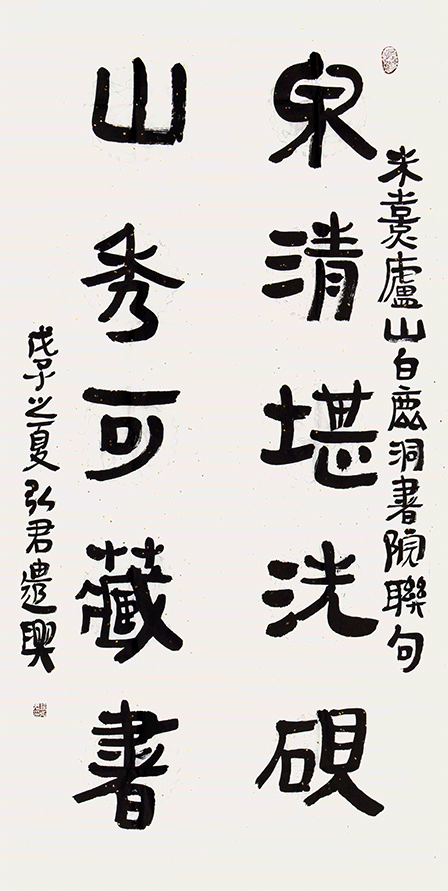 朱熹廬山白鹿洞書院聯句
泉清堪洗硯
山秀可藏書
戊子之夏弘君遣興